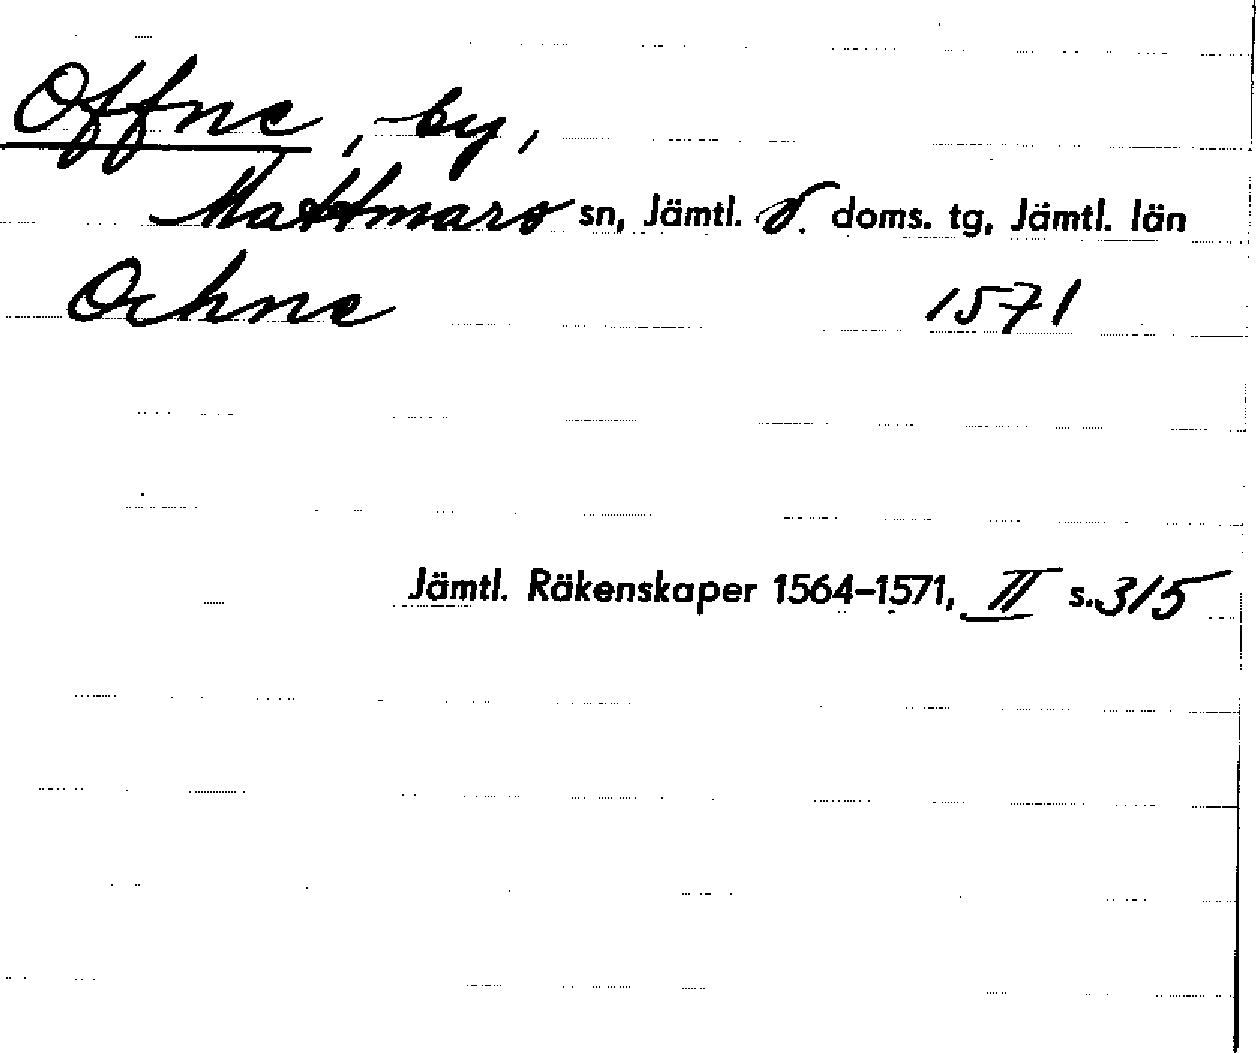 Offne, by,
Mattmars sn, Jämtl. v. doms. tg, Jämtl. län
Ochne 1571
Jämtl. Räkenskaper 1564–1571, II s. 315